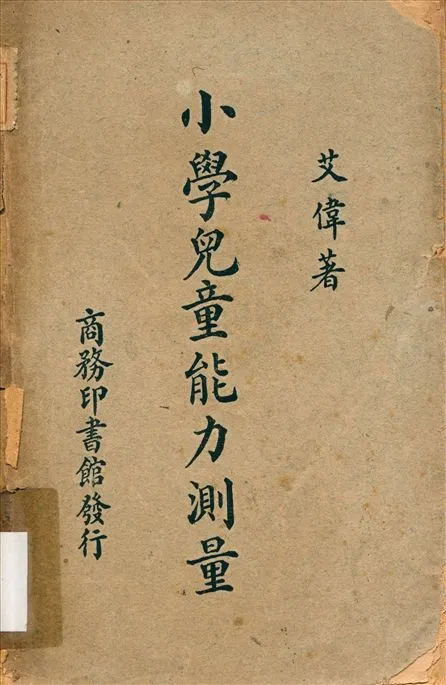 艾偉著
小學兒童能力測量
商務印書館發行